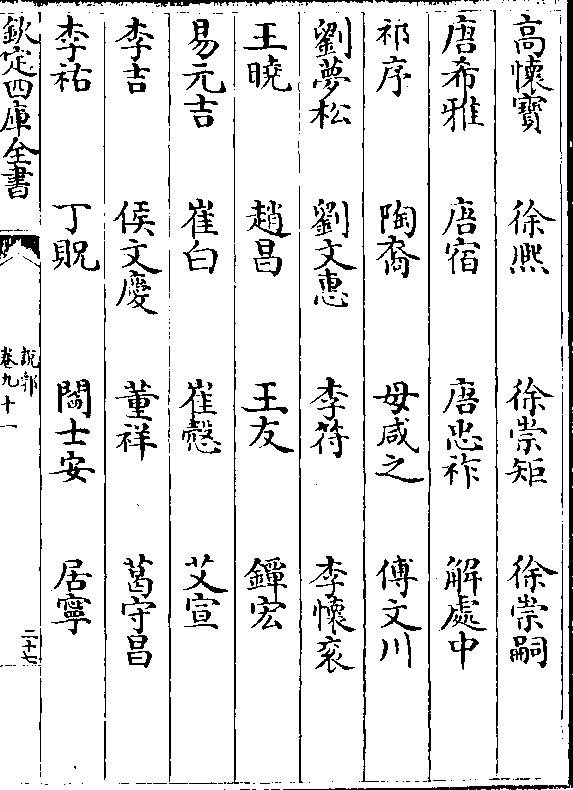 高懷寶 徐熈 徐崇矩 徐崇嗣
唐希雅 唐宿 唐忠祚 解處中
祁序 陶裔 母咸之 傅文川
劉夢松 劉文惠 李符 李懷衮
王曉 趙昌 王友 鐔宏
易元吉 崔白 崔慤 艾宣
李吉 侯文慶 董祥 葛守昌
李祐 丁貺 閻士安 居寧
欽定四庫全書
說郛
卷九十一
二十七